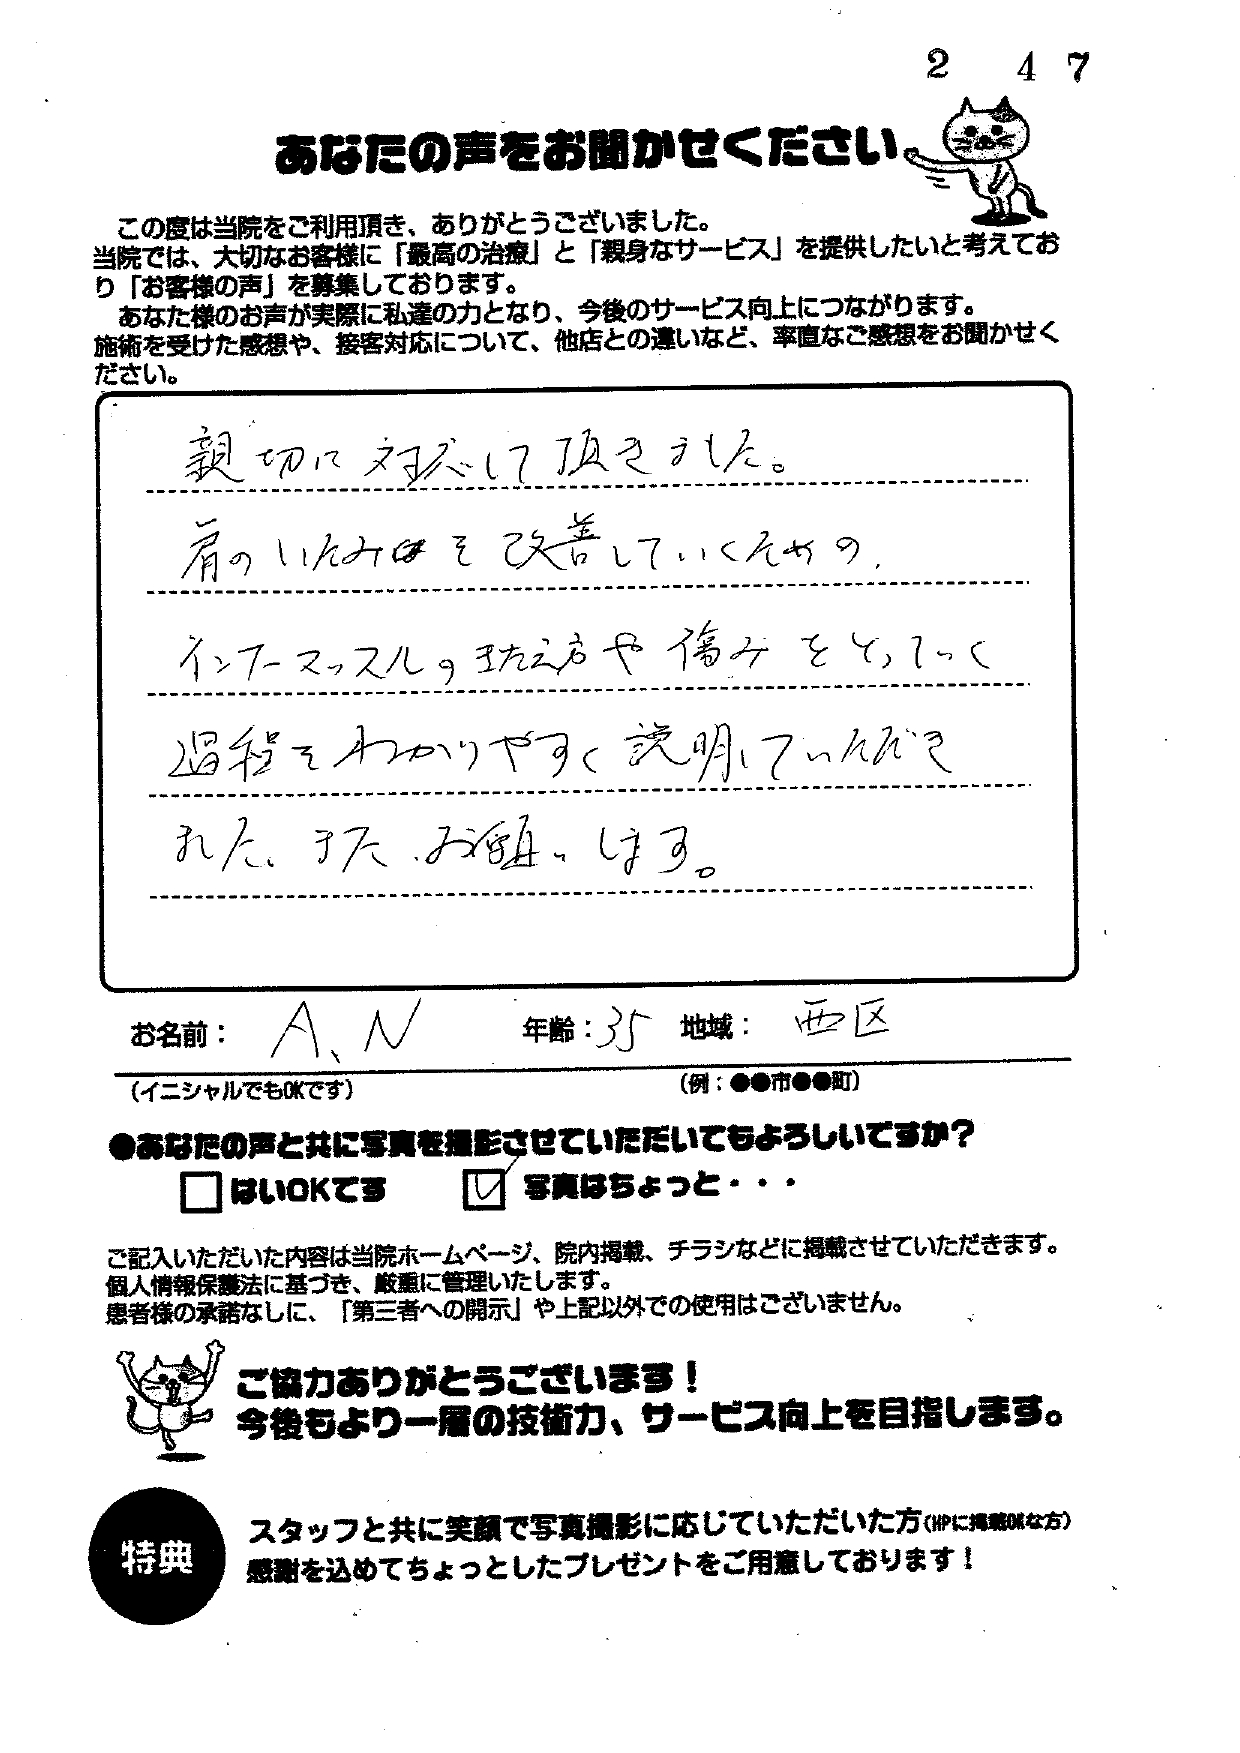 2 4 7
あなたの声をお聞かせください
この度は当院をご利用頂き、ありがとうございました。
当院では、大切なお客様に「最高の治療」と「親身なサービス」を提供したいと考えてお
り「お客様の声」を募集しております。
あなた様のお声が実際に私達の力となり、今後のサービス向上につながります。
施術を受けた感想や、接客対応について、他店との違いなど、率直なご感想をお聞かせく
ださい。
親切に対応して頂きました。
肩のいたみを改善していくための、
インナーマッスルのきたえ方や傷みをとっていく
過程をわかりやすく説明していただき
ました、また、お願いします。
お名前： A、N 年齢：35 地域： 西区
（イニシャルでもOKです） （例：●●市●●町）
●あなたの声と共に写真を撮影させていただいてもよろしいですか？
はいOKです 写真はちょっと・・・
ご記入いただいた内容は当院ホームページ、院内掲載、チラシなどに掲載させていただきます。
個人情報保護法に基づき、厳重に管理いたします。
患者様の承諾なしに、「第三者への開示」や上記以外での使用はございません。
ご協力ありがとうございます！
今後もより一層の技術力、サービス向上を目指します。
特典
スタッフと共に笑顔で写真撮影に応じていただいた方（HPに掲載OKな方）
感謝を込めてちょっとしたプレゼントをご用意しております！